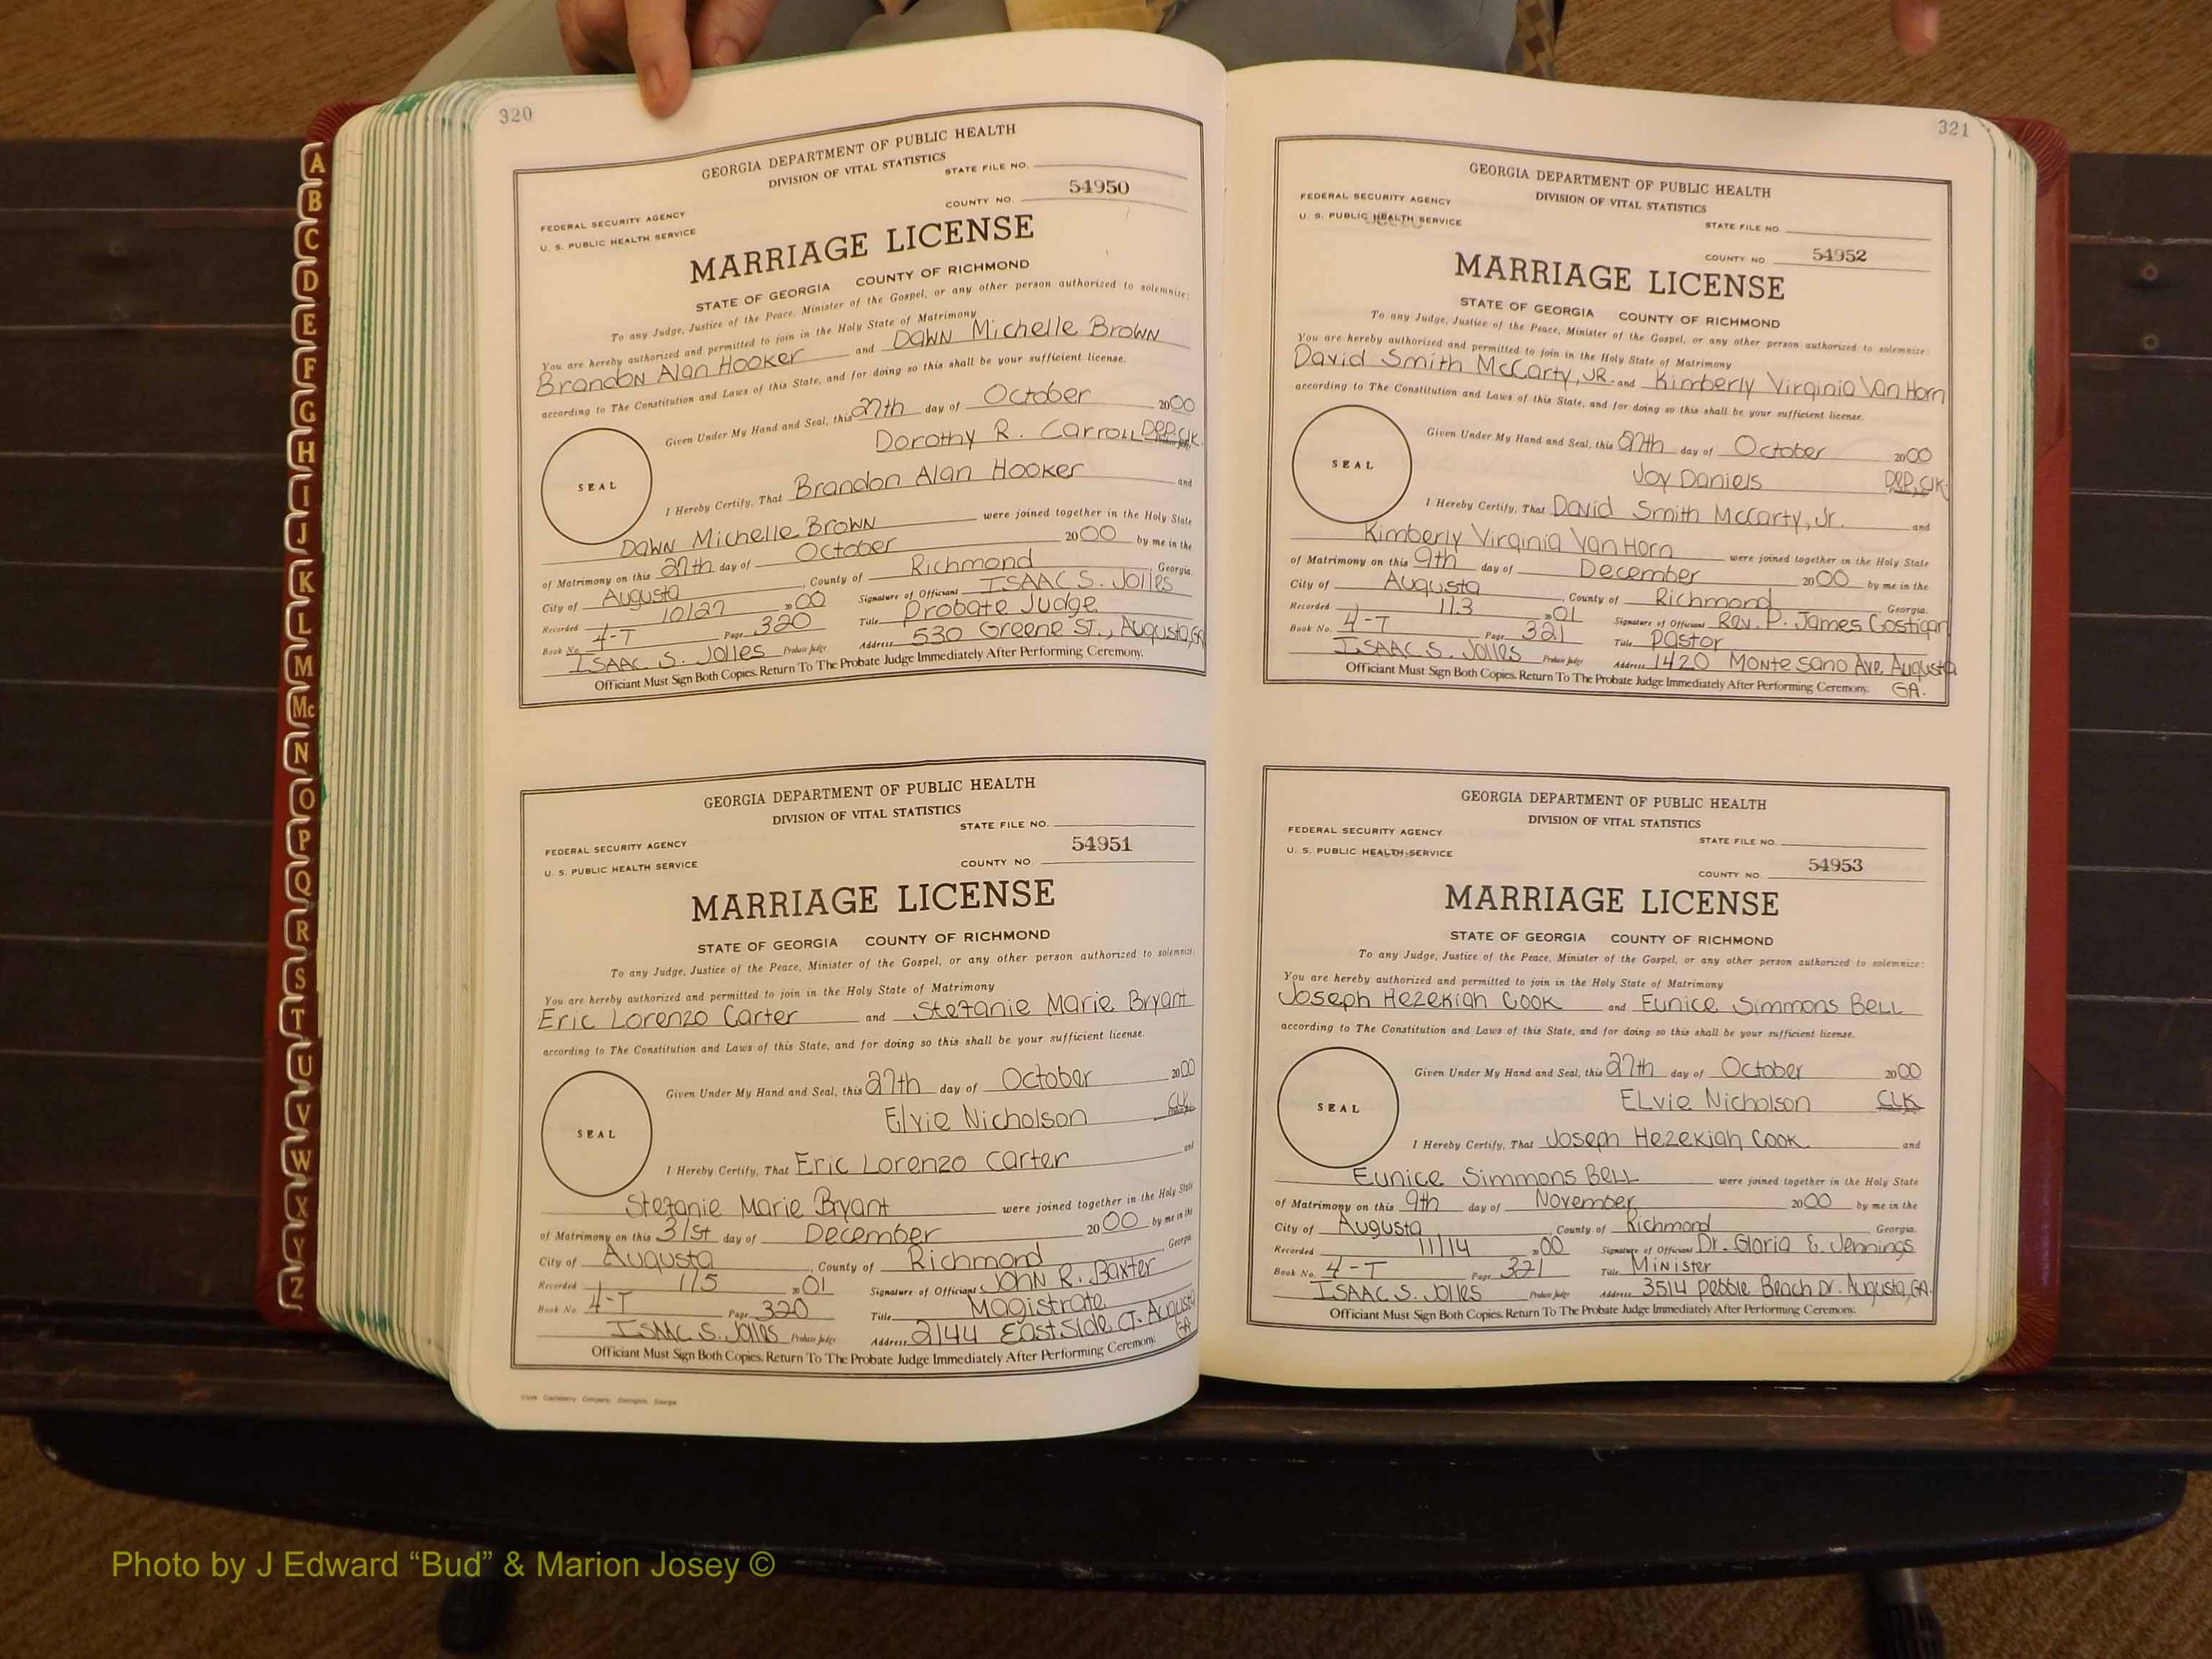 A
B
C
D
E
F
G
H
I
J
K
L
M
Mc
N
O
P
Q
R
S
T
U
V
W
X
Y
Z
320
GEORGIA DEPARTMENT OF PUBLIC HEALTH
DIVISION OF VITAL STATISTICS
STATE FILE NO.
54950
COUNTY NO.
FEDERAL SECURITY AGENCY
U. S. PUBLIC HEALTH SERVICE
MARRIAGE LICENSE
STATE OF GEORGIA COUNTY OF RICHMOND
To any Judge, Justice of the Peace, Minister of the Gospel, or any other person authorized to solemnize:
You are hereby authorized and permitted to join in the Holy State of Matrimony
Brandon Alan Hooker and Dawn Michelle Brown
according to The Constitution and Laws of this State, and for doing so this shall be your sufficient license.
Given Under My Hand and Seal, this 27th day of October 2000
Dorothy R. Carroll Dep. Clk.
SEAL
I Hereby Certify, That Brandon Alan Hooker and
Dawn Michelle Brown were joined together in the Holy State
of Matrimony on this 27th day of October 2000 by me in the
City of Augusta, County of Richmond Georgia.
Recorded 10/27 2000 Signature of Officiant Isaac S. Jolles
Book No. 4-T Page 320 Title Probate Judge
Isaac S. Jolles Probate Judge Address 530 Greene St., Augusta, GA
Officiant Must Sign Both Copies. Return To The Probate Judge Immediately After Performing Ceremony.
GEORGIA DEPARTMENT OF PUBLIC HEALTH
DIVISION OF VITAL STATISTICS
STATE FILE NO.
54951
COUNTY NO.
FEDERAL SECURITY AGENCY
U. S. PUBLIC HEALTH SERVICE
MARRIAGE LICENSE
STATE OF GEORGIA COUNTY OF RICHMOND
To any Judge, Justice of the Peace, Minister of the Gospel, or any other person authorized to solemnize:
You are hereby authorized and permitted to join in the Holy State of Matrimony
Eric Lorenzo Carter and Stefanie Marie Bryant
according to The Constitution and Laws of this State, and for doing so this shall be your sufficient license.
Given Under My Hand and Seal, this 27th day of October 2000
Elvie Nicholson Clk
SEAL
I Hereby Certify, That Eric Lorenzo Carter and
Stefanie Marie Bryant were joined together in the Holy State
of Matrimony on this 31st day of December 2000 by me in the
City of Augusta, County of Richmond, Georgia
Recorded 1/5 2001 Signature of Officiant John R. Baxter
Book No. 4-T Page 320 Title Magistrate
Isaac S. Jolles Probate Judge Address 2144 Eastside Ct. Augusta GA
Officiant Must Sign Both Copies. Return To The Probate Judge Immediately After Performing Ceremony.
321
GEORGIA DEPARTMENT OF PUBLIC HEALTH
DIVISION OF VITAL STATISTICS
FEDERAL SECURITY AGENCY
U. S. PUBLIC HEALTH SERVICE
STATE FILE NO.
COUNTY NO 54952
MARRIAGE LICENSE
STATE OF GEORGIA COUNTY OF RICHMOND
To any Judge, Justice of the Peace, Minister of the Gospel, or any other person authorized to solemnize:
You are hereby authorized and permitted to join in the Holy State of Matrimony
David Smith McCarty, Jr. and Kimberly Virginia Van Horn
according to The Constitution and Laws of this State, and for doing so this shall be your sufficient license.
Given Under My Hand and Seal, this 27th day of October 2000
Joy Daniels Dep. Clk.
SEAL
I Hereby Certify, That David Smith McCarty, Jr. and
Kimberly Virginia Van Horn were joined together in the Holy State
of Matrimony on this 9th day of December 2000 by me in the
City of Augusta, County of Richmond, Georgia.
Recorded 1/3 2001 Signature of Officiant Rev. P. James Costigan
Book No. 4-T Page 321 Title Pastor
Isaac S. Jolles Probate Judge Address 1420 Monte Sano Ave. Augusta
GA.
Officiant Must Sign Both Copies. Return To The Probate Judge Immediately After Performing Ceremony.
GEORGIA DEPARTMENT OF PUBLIC HEALTH
DIVISION OF VITAL STATISTICS
FEDERAL SECURITY AGENCY
U. S. PUBLIC HEALTH SERVICE
STATE FILE NO.
COUNTY NO. 54953
MARRIAGE LICENSE
STATE OF GEORGIA COUNTY OF RICHMOND
To any Judge, Justice of the Peace, Minister of the Gospel, or any other person authorized to solemnize:
You are hereby authorized and permitted to join in the Holy State of Matrimony
Joseph Hezekiah Cook and Eunice Simmons Bell
according to The Constitution and Laws of this State, and for doing so this shall be your sufficient license.
Given Under My Hand and Seal, this 27th day of October 2000
Elvie Nicholson Clk
SEAL
I Hereby Certify, That Joseph Hezekiah Cook and
Eunice Simmons Bell were joined together in the Holy State
of Matrimony on this 9th day of November 2000 by me in the
City of Augusta, County of Richmond, Georgia.
Recorded 11/14 2000 Signature of Officiant Dr. Gloria E. Jennings
Book No. 4-T Page 321 Title Minister
Isaac S. Jolles Probate Judge Address 3514 Pebble Beach Dr. Augusta, GA.
Officiant Must Sign Both Copies. Return To The Probate Judge Immediately After Performing Ceremony.
Photo by J Edward “Bud” & Marion Josey ©